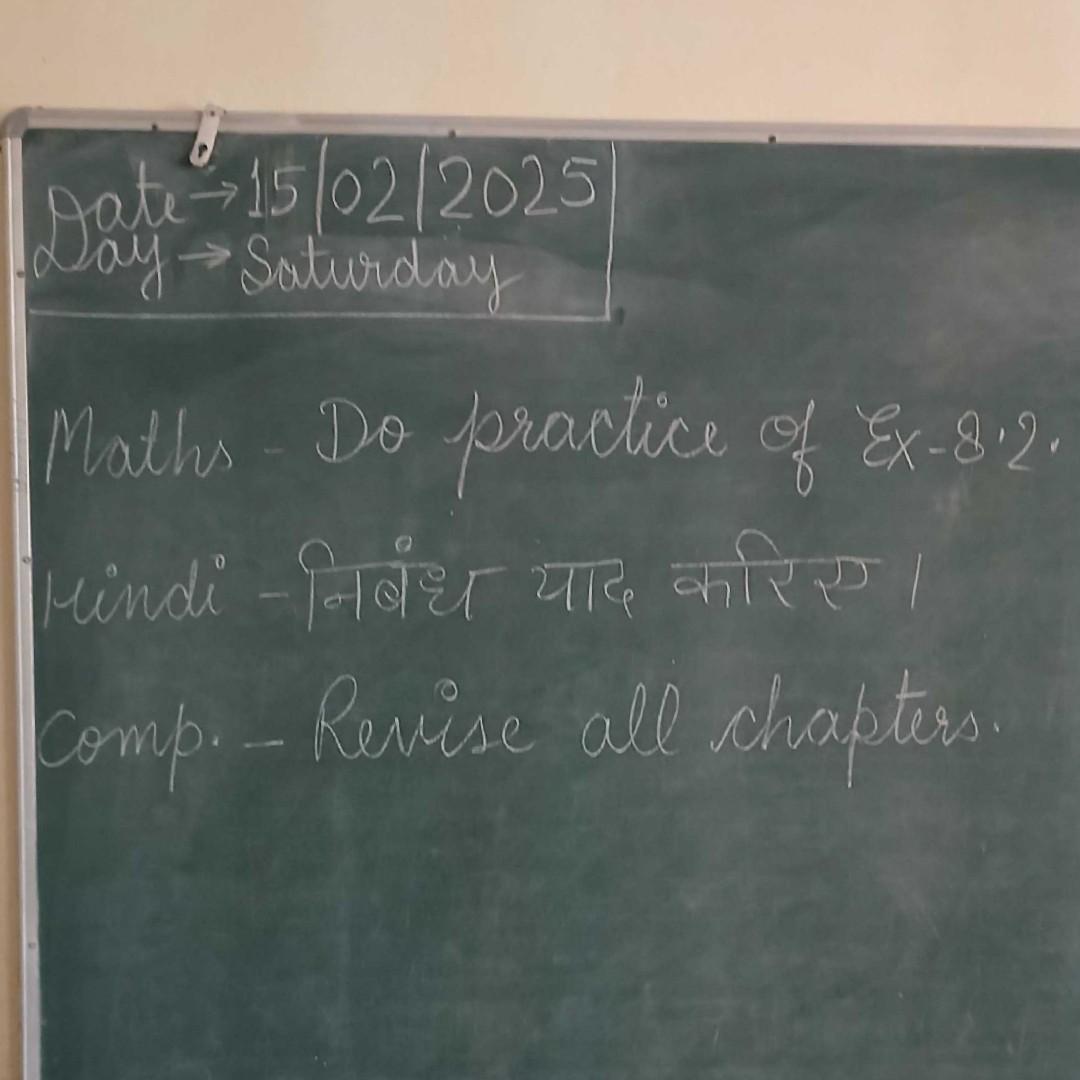 Date → 15/02/2025
Day → Saturday
Maths - Do practice of Ex-8.2.
Hindi - निबंध याद करिए।
Comp. - Revise all chapters.